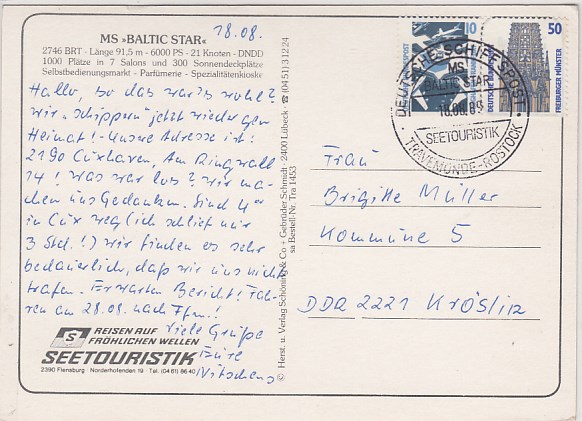 18.08.
MS »BALTIC STAR«
2746 BRT - Länge 91,5 m - 6000 PS - 21 Knoten - DNDD
1000 Plätze in 7 Salons und 300 Sonnendeckplätze
Selbstbedienungsmarkt - Parfümerie - Spezialitätenkioske
Hallo, so das war's wohl?
wir „schippern“ jetzt wieder gen
Heimat! Unsre Adresse ist:
2190 Cuxhaven, Am Ringwall
14! Was war los? wir ma-
chen uns Gedanken. Sind 4°°
in Cux weg (ich schlief nur
3 Std.!) wir finden es sehr
bedauerlich, daß wir uns nicht
trafen. Erwarten Bericht! Fah-
ren am 28.08. nach Ffm.!
Viele Grüße
Eure
Nitschens
S REISEN AUF
FRÖHLICHEN WELLEN
SEETOURISTIK
2390 Flensburg · Norderhofenden 19 Tel. (04 61) 86 40
© Herst. u. Verlag Schöning & Co + Gebrüder Schmidt · 2400 Lübeck · ☎ (04 51) 3 12 24
sa Bestell-Nr. Tra 1453
10
50
DEUTSCHE
FREIBURGER MÜNSTER
DEUTSCHE SCHIFFSPOST
MS
BALTIC STAR
18.08.89
SEETOURISTIK
TRAVEMÜNDE-ROSTOCK
Frau
Brigitte Müller
Kommüne 5
DDR 2221 Kröslin